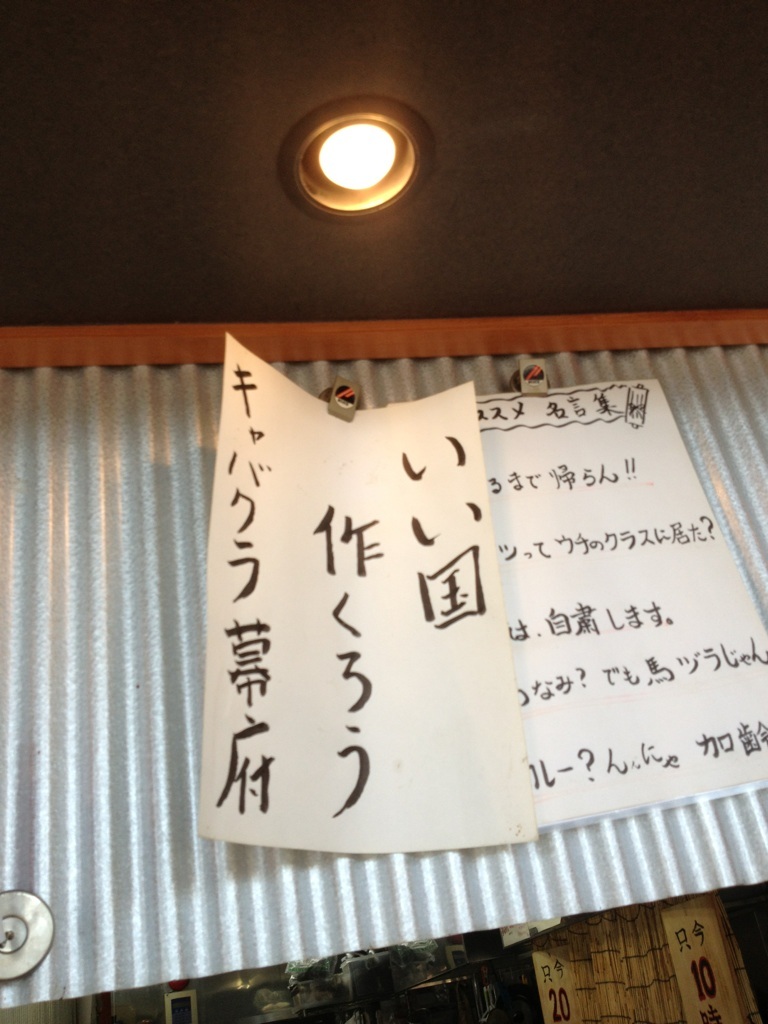 いい国
作くろう
キャバクラ幕府
ススメ 名言集
るまで 帰らん!!
ツって ウチのクラスに居た?
は、自粛します。
なみ? でも馬ヅラじゃん
ルー? んにゃ 加齢
只今
10時
只今
20